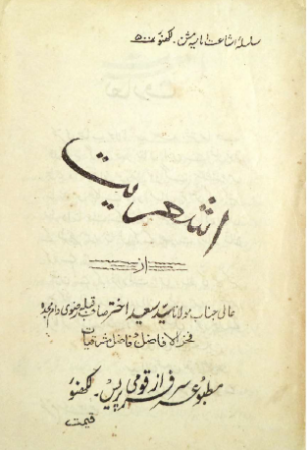 سلسلہ اشاعت امامیہ مشن۔ لکھنؤ ۵۰۰
اشعریت
از
عالی جناب مولانا سید سعید اختر صاحب قبلہ رضوی دام مجدہ
فخر الافاضل فاضل مشرقیات
مطبوعہ سرفراز قومی پریس۔ لکھنؤ
قیمت